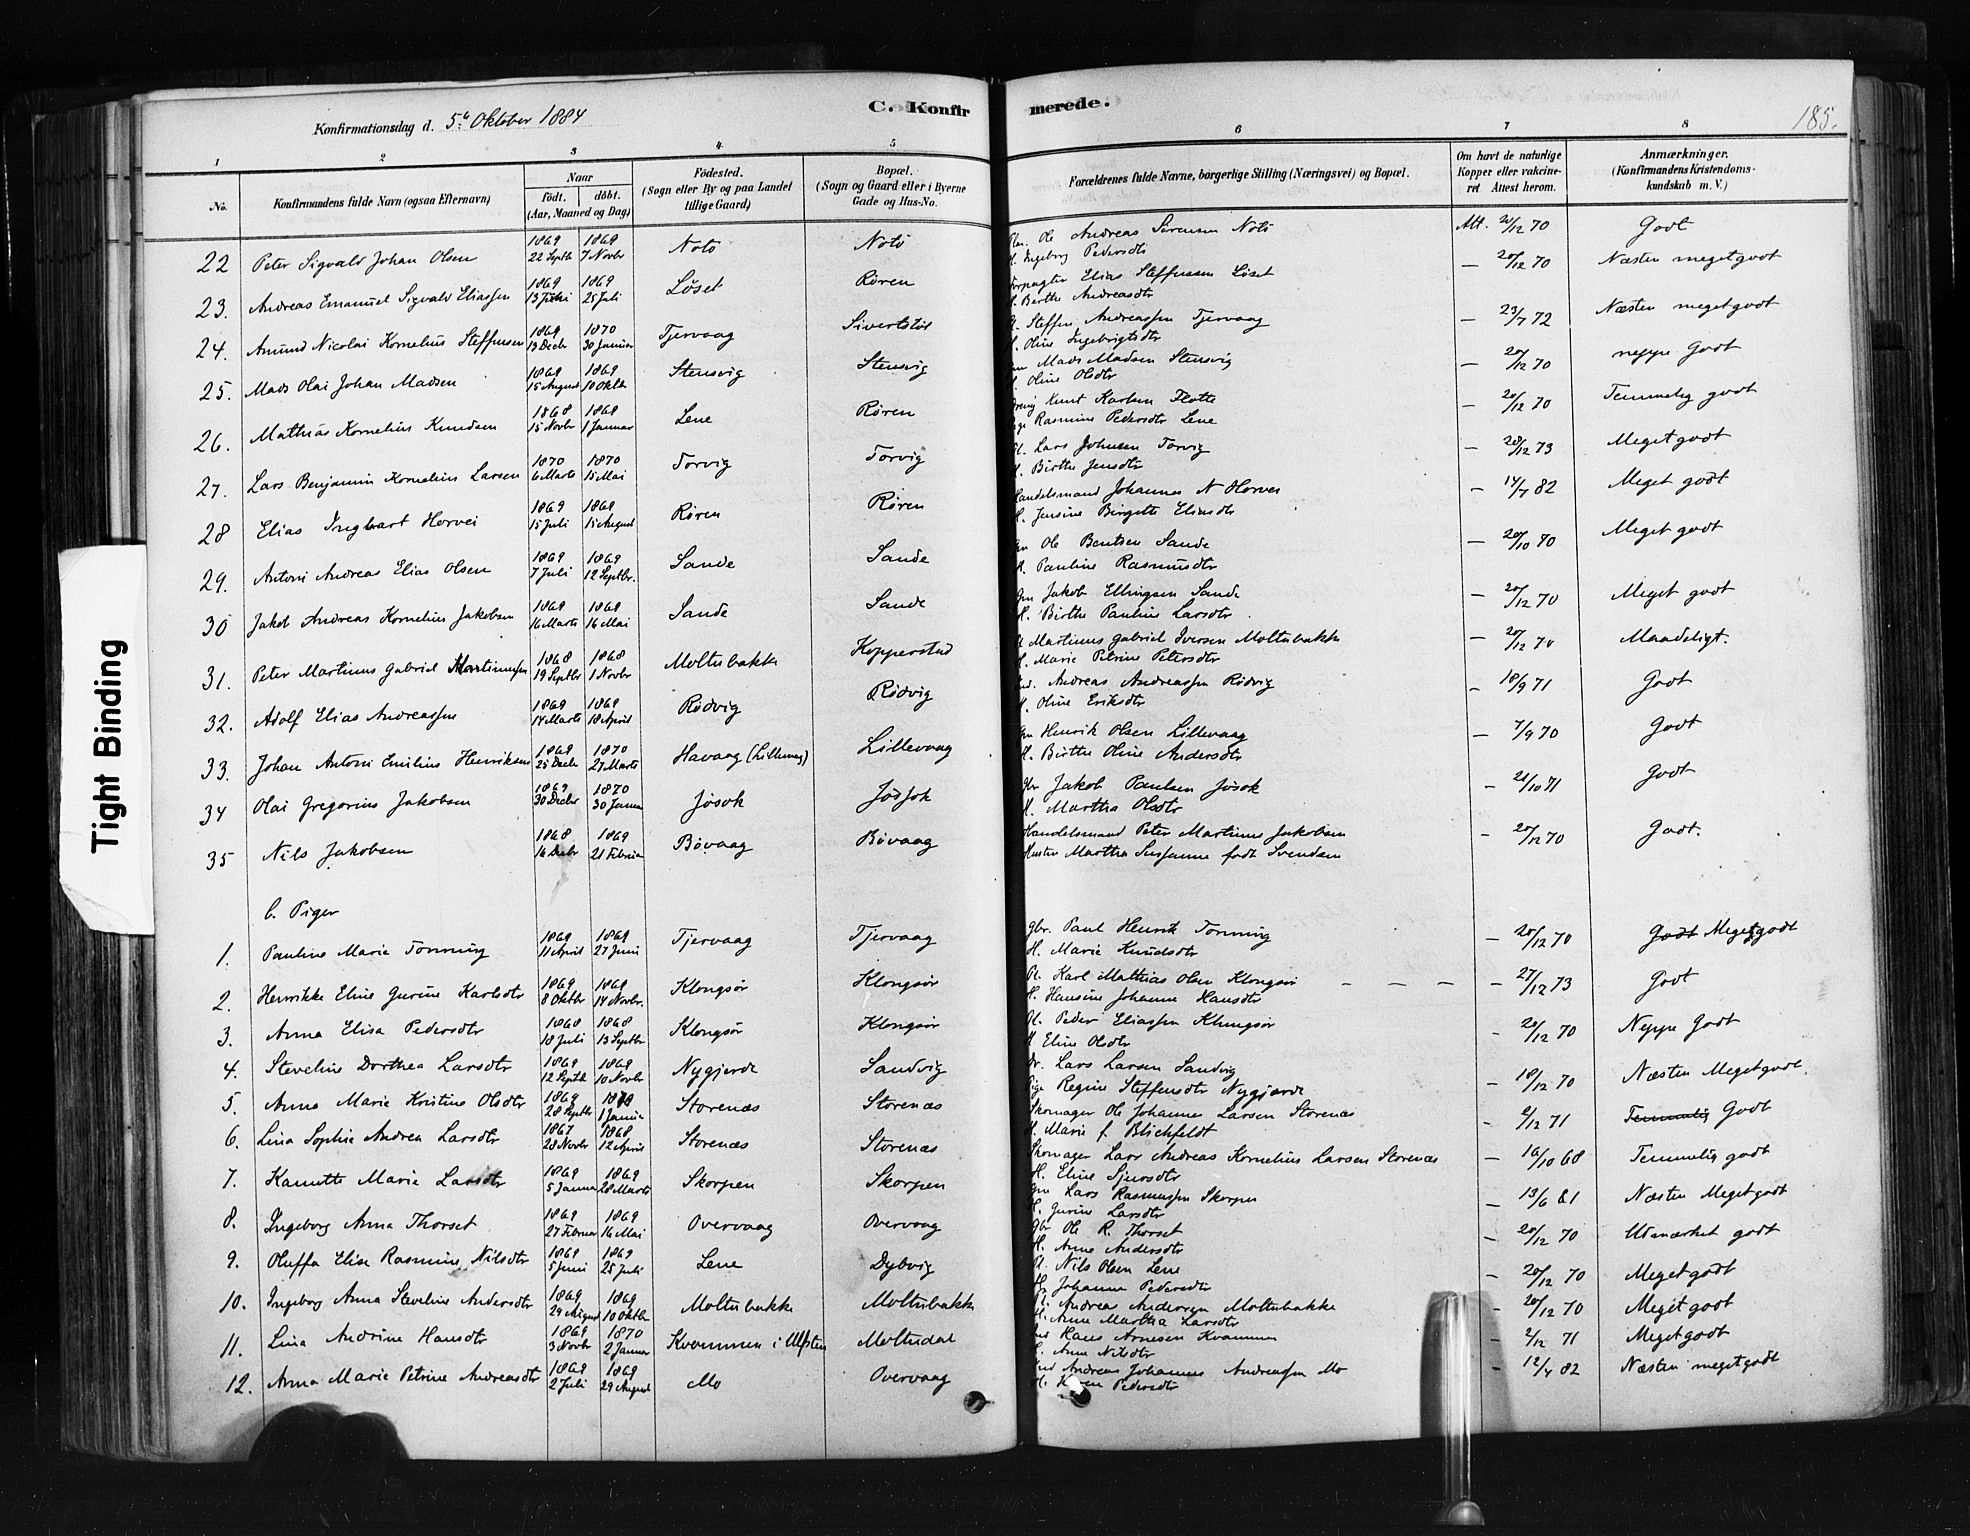 C. Konfirmerede.
185.
Konfirmationsdag d. 5te Oktober 1884
1 2 3 4 5 6 7 8
No. Konfirmandens fulde Navn (ogsaa Efternavn) Naar födt. döbt. (Aar, Maaned og Dag) Födested. (Sogn eller By og paa Landet tillige Gaard) Bopæl. (Sogn og Gaard eller i Byerne Gade og Hus-No. Forældrenes fulde Navne, borgerlige Stilling (Næringsvei) og Bopæl. Om havt de naturlige Kopper eller vakcineret Attest herom. Anmærkninger. (Konfirmandens Kristendomskundskab m. V.)
22 Peter Sigvald Johan Olsen 1869 22 Septb 1869 7 Novbr Notö Notö Ole Andreas Sörensen Notö H. Ingeborg Pedersdtr Att. 20/12 70 Godt
23. Andreas Emanuel Sigvald Eliassen 1869 13 Juni 1869 25 Juli Löset Rören Elias Steffensen Löset H. Berthe Andreasdtr — 20/12 70 Næsten megetgodt
24. Amund Nicolai Kornelius Steffensen 1869 13 Decbr 1870 30 Januar Tjervaag Sivertstöl Steffen Andreassen Tjervaag H. Oline Ingebrigtsdtr — 23/7 72 Næsten megetgodt
25. Mads Olai Johan Madsen 1869 15 August 1869 10 Oktb Stensvig Stensvig Mads Madsen Stensvig H. Oline Olsdtr — 20/12 70 neppe Godt
26. Mathias Kornelius Knudsen 1868 15 Novbr 1869 1 Januar Lene Rören Knut Karlsen Flotte Rasmine Pedersdtr Lene — 20/12 70 Temmelig godt
27. Lars Benjamin Kornelius Larsen 1870 6 Marts 1870 15 Mai Torvig Torvig Lars Johnsen Torvig H. Birthe Jensdtr — 20/12 73 Meget godt
28 Elias Ingbart Horvei 1869 15 Juli 1869 15 August Rören Rören Handelsmand Johannes N Horvei H. Jensine Birgitte Eliasdtr — 14/7 82 Meget godt
29. Antoni Andreas Elias Olsen 1869 7 Juli 1869 12 Septbr. Sande Sande Ole Bentsen Sande H. Pauline Rasmusdtr — 20/10 70 Meget godt
30 Jakob Andreas Kornelius Jakobsen 1869 16 Marts 1869 16 Mai Sande Sande Jakob Ellingsen Sande H. Birthe Pauline Larsdtr — 20/12 70 Meget godt
31. Peter Martinus Gabriel Martinussen 1868 19 Septbr 1868 1 Novbr Moltubakke Kopperstad Martinus Gabriel Iversen Moltubakke H. Marie Petrine Petersdtr — 20/12 70 Maadeligt.
32. Adolf Elias Andreassen 1869 14 Marts 1869 18 April Rödvig Rödvig Andreas Andreassen Rödvig H. Oline Eriksdtr — 18/9 71 Godt
33. Johan Antoni Emilius Henriksen 1869 25 Decbr 1870 27 Marts Havaag (Lillevaag) Lillevaag Henrik Olsen Lillevaag H. Birthe Oline Andersdtr — 7/9 70 Godt
34 Olai Gregorius Jakobsen 1869 30 Decbr 1870 30 Januar Jösok Jösok Jakob Paulsen Jösok H. Martha Olsdtr — 21/10 71 Godt
35 Nils Jakobsen 1868 16 Decbr 1869 21 Februar Bövaag Bövaag Handelsmand Peter Martinus Jakobsen Hustru Martha Susanne født Svendsen — 20/12 70 Godt.
b. Piger
1. Pauline Marie Tonning 1869 11 April 1869 27 Juni Tjervaag Tjervaag Gbr. Paul Henrik Tonning H. Marie Knudsdtr — 20/12 70 Godt Megetgodt
2. Henrikke Eline Gurine Karlsdtr 1869 8 Oktbr 1869 14 Novbr. Klongsör Klongsör Karl Mathias Olsen Klongsör H. Hansine Johanne Hansdtr — 27/12 73 Godt
3. Anna Elisa Pedersdtr 1868 18 Juli 1868 13 Septbr Klongsör Klongsör Peder Eliassen Klungsör H Eline Olsdtr — 20/12 70 Neppe Godt
4. Steveline Dorthea Larsdtr 1869 12 Septb 1869 10 Novbr Nygjerde Sandvig Lars Larsen Sandvig Regine Steffensdtr Nygjerde — 18/12 70 Næsten Megetgodt.
5. Anna Marie Kristine Olsdtr 1869 28 Septbr 1870 1 Januar Storenæs Storenæs Skomager Ole Johannes Larsen Storenæs H. Marie f. Blichfeldt — 2/12 71 Temmelig Godt
6. Lina Sophie Andrea Larsdtr 1867 28 Novbr 1868 12 April Storenæs Storenæs Skomager Lars Andreas Kornelius Larsen Storenæs H. Eline Sjursdtr — 16/10 68 Temmelig godt
7. Kanutte Marie Larsdtr 1869 5 Januar 1869 28 Marts Skorpen Skorpen Lars Rasmussen Skorpen H. Gurine Larsdtr — 13/6 81 Næsten Megetgodt
8. Ingeborg Anna Thorset 1869 27 Februar 1869 16 Mai Overvaag Overvaag Gbr Ole R. Thorset H. Anne Andersdtr — 20/12 70 Udmærket godt
9. Oluffa Elise Rasmine Nilsdtr 1869 5 Juni 1869 25 Juli Lene Dybvig Nils Olsen Lene H. Johanne Pedersdtr — 20/12 70 Megetgodt
10. Ingeborg Anna Steveline Andersdtr 1869 29 August 1869 10 Oktbr Moltubakke Moltubakke Andrea Andersen Moltubakke H. Anne Martha Larsdtr — 20/12 70 Megetgodt
11. Lina Andrine Hansdtr 1869 3 Novbr 1870 2 Januar Kvammen i Ulfsten Moltudal Hans Arnesen Kvammen H. Anne Nilsdtr — 2/12 71 Megetgodt
12. Anna Marie Petrine Andreasdtr 1869 2 Juli 1869 29 August Mo Overvaag Andreas Johannes Andreassen Mo H. Karen Pedersdtr — 12/4 82 Næsten megetgodt
Tight Binding